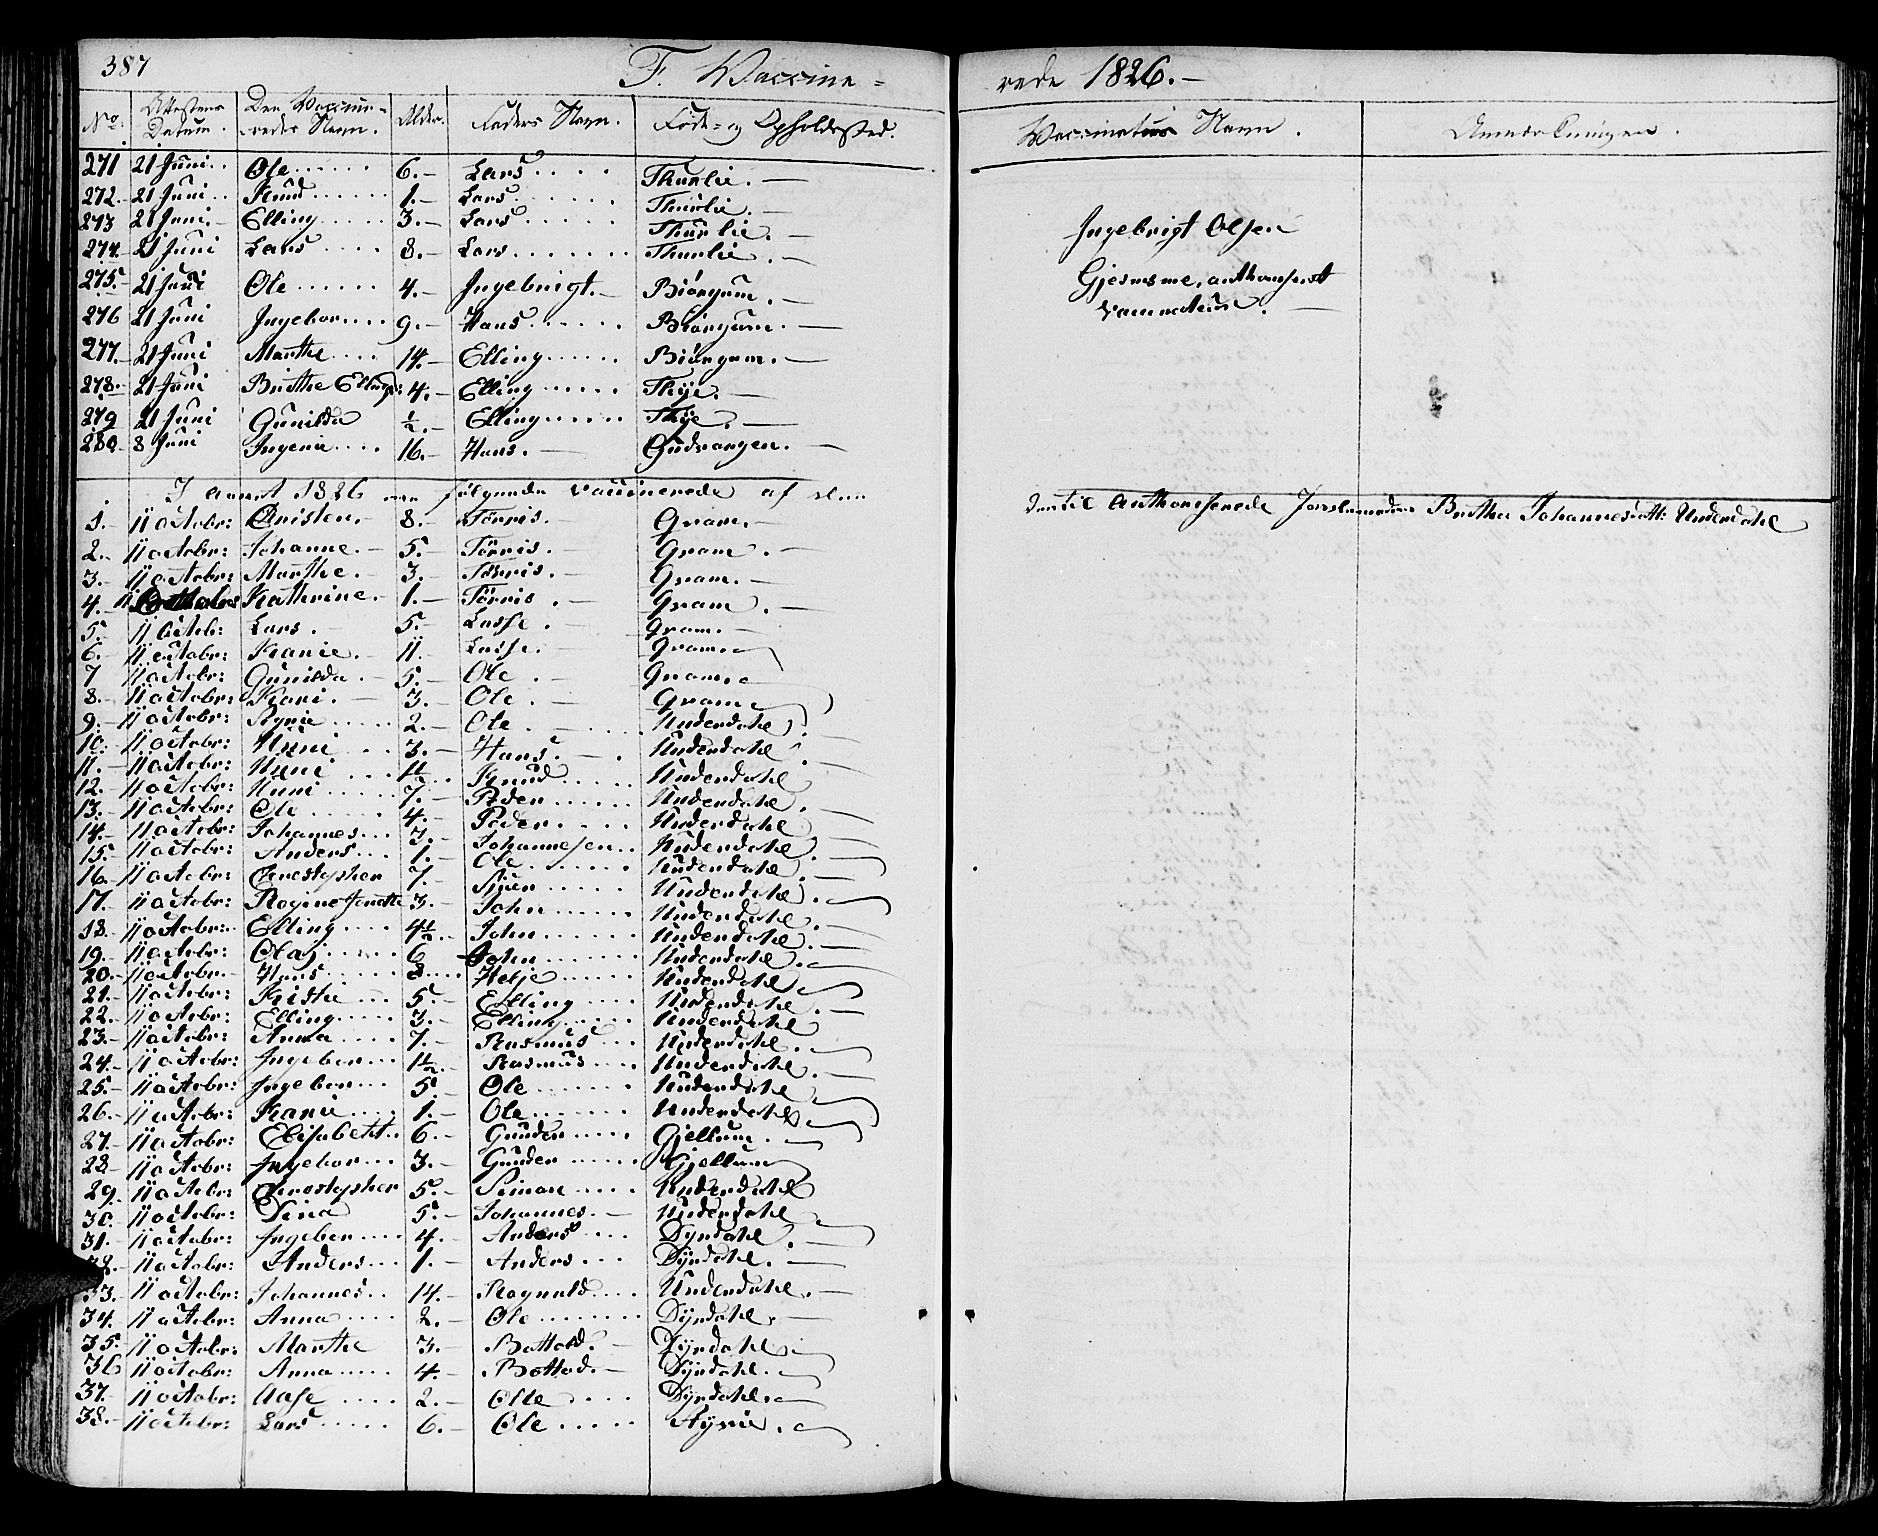 387 F. Vaccine=rede 1826.-
No. Attestens Datum. Den Vaccine-redes Navn. Alder. Faders Navn. Føde- og Opholdssted. Vaccinateurs Navn. Anmærkninger.
271 21 Juni.. Ole...... 6.- Lars.... Thurlie.-
272.- 21 Juni.. Knud...... 1.- Lars...... Thurlie.-
273 21 Juni.- Elling..... 3.- Lars...... Thurlie.- Ingebrigt Olsen
274. 21 Juni Lars.... 8.- Lars....... Thurlie.-
275.- 21 Juni Ole...... 4.- Ingebrigt.- Biørgum.- Gjesme, anthoriseret
276 21 Juni Ingebor.... 9.- Hans...... Biørgum.- Vaccinateur.-
277.- 21 Juni Marthe.... 14.- Elling...... Biørgum.-
278.- 21 Juni Brithe Ellings: 4.- Elling...... Thije.-
279 21 Juni Gunilda ½.- Elling..... Thije.-
280. 8 Juni Ingerie.... 16.- Hans.- Gudvangen.-
I aaret 1826 ere følgende vaccinerede af den dertil anthoriserede Brithe Johannesdtt: Underdahl
1.- 11 octobr: Cristen.- 8.- Tørris.- Gram.-
2.- 11 octobr: Johanne.- 5.- Tørris.- Gram.-
3.- 11 octobr: Marthe.- 3.- Tørris.- Gram.-
4.- 11 Kathrine.- 1.- Tørris.- Gram.-
5. 11 octob: Lars.- 5.- Lasse.- Gram.-
6.- 11 octobr: Karie.- 11.- Lasse.- Gram.
7 11 octobr: Gunilda.- 5.- Ole.- Gram.
8.- 11 octobr: Kari.- 3.- Ole.- Gram
9.- 11 octobr: Kyrie..... 2.- Ole.-.... Underdahl.
10.- 11 octobr: Uni.... 3.- Hans.-. Underdahl.-
11.- 11 octobr: Uni.... Knud..... Underdahl.-
12.- 11 octobr: Uni..... 7.- Peder...... Underdahl.-
13.- 11 octobr: Ole...... 4.- Peder..... Underdahl.-
14.- 11 octobr: Johannes... 3.- Johannesen.. Underdahl.
15.- 11 octobr: Anders... 1.- Ole....... Underdahl.
16.- 11 octobr: Christopher 7.- Sjur...... Underdahl.
17.- 11 octobr: Regine Jonette 3.- John...... Underdahl.-
18.- 11 octobr: Elling.... 4½.. John....... Underdahl.-
19.- 11 octobr: Olaj..... 6 John....... Underdahl.
20.- 11 octobr: Hans..... 8.... Helje...... Underdahl
21.- 11 octobr: Kristi.... 5.- Elling.... Underdahl.-
22.- 11 octobr: Elling..... 3.- Elling..... Underdahl
23.- 11 octobr: Anna..... 7.- Rasmus... Underdahl.
24.- 11 octobr: Ingebor... 1½.- Rasmus.... Underdahl.-
25.- 11 octobr: Ingebor... 5.- Ole....... Underdahl
26.- 11 octobr: Karie.... 1.- Ole....... Underdahl
27.- 11 octobr: Elisabetht.. 6.- Gunder..... Gjellum.
28.- 11 octobr: Ingebor... 3.- Gunder...... Gjellum
29. 11 octobr: Christopher 5.- Simon..... Underdahl
30.- 11 octobr: Sina 5.- Johannes.- Underdahl
31.- 11 octobr: Ingebor.... 4.- Anders.... Dyrdahl.-
11 octobr: Anders... 1.- Anders... Dyrdahl.-
33.- 11 octobr: Johannes.. 14.- Ragnald.... Underdahl.-
34.- 11 octobr: Anna..... 2.- Ole........ Dyrdahl.-
35.- 11 octobr: Marthe 3.- Bottold.- Dyrdahl.-
36 11 octobr: Anna..... 4.- Bottod.- Dyrdahl.-
37.- 11 octobr: Aase..... 2.- Olle.... Dyrdahl.-
38.- 11 octobr: Lars..... 6.- Ole......